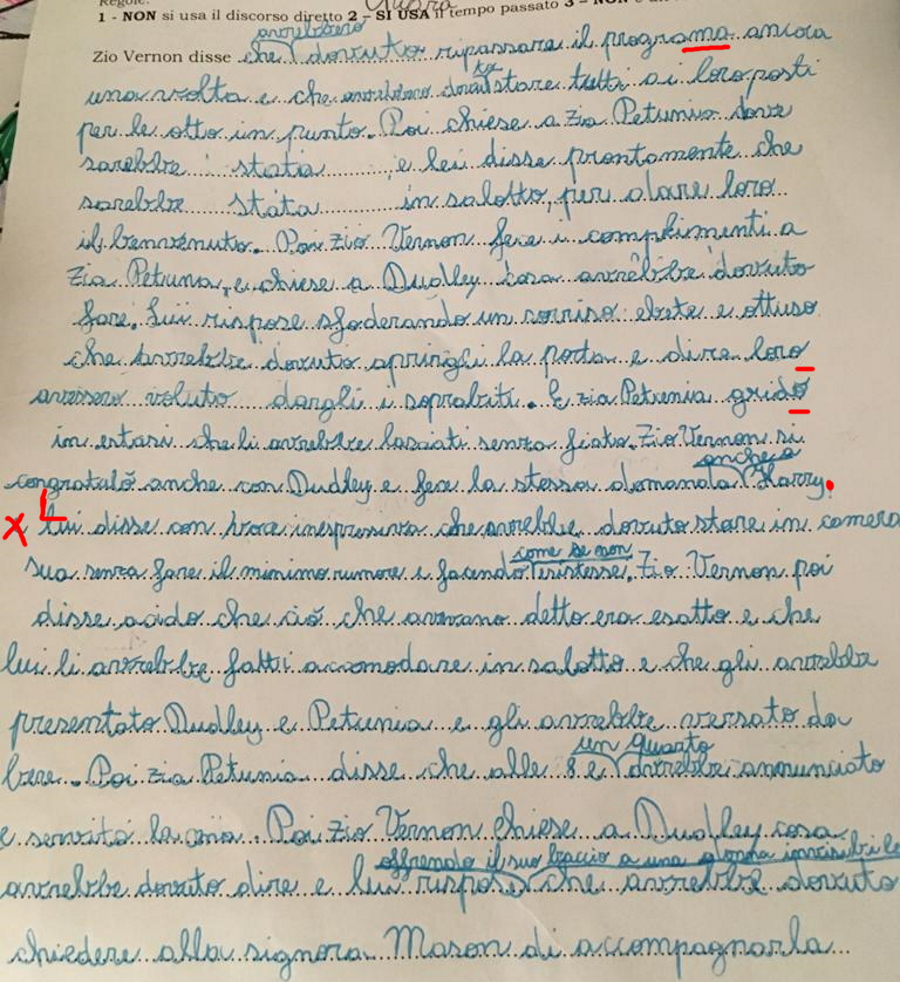 Regole:
1 - NON si usa il discorso diretto 2 - SI USA il tempo passato 3 - NON
avrebbero
Zio Vernon disse che dovuto ripassare il programa ancora
una volta e che avrebbero dovuto stare tutti ai loro posti
per le otto in punto. Poi chiese a zia Petunia dove
sarebbe stata e lei disse prontamente che
sarebbe stata in salotto, per dare loro
il benvenuto. Poi zio Vernon fece i complimenti a
zia Petunia, e chiese a Dudley cosa avrebbe dovuto
fare. Lui rispose sfoderando un sorriso ebete e ottuso
che avrebbe dovuto aprirgli la porta e dire loro
avessero voluto dargli i soprabiti. E zia Petunia gridò
in estasi che li avrebbe lasciati senza fiato. Zio Vernon si
congratulò anche con Dudley e fece la stessa domanda anche a Harry.
X Lui disse con voce inespressiva che avrebbe dovuto stare in camera
sua senza fare il minimo rumore e facendo come se non esistesse. Zio Vernon poi
disse acido che ciò che avevano detto era esatto e che
lui li avrebbe fatti accomodare in salotto e che gli avrebbe
presentato Dudley e Petunia e gli avrebbe versato da
bere. Poi zia Petunia disse che alle 8 e un quarto avrebbe annunciato
e servito la cena. Poi zio Vernon chiese a Dudley cosa
offrendo il suo braccio a una donna invisibile
avrebbe dovuto dire e lui rispose che avrebbe dovuto
chiedere alla signora Mason di accompagnarla